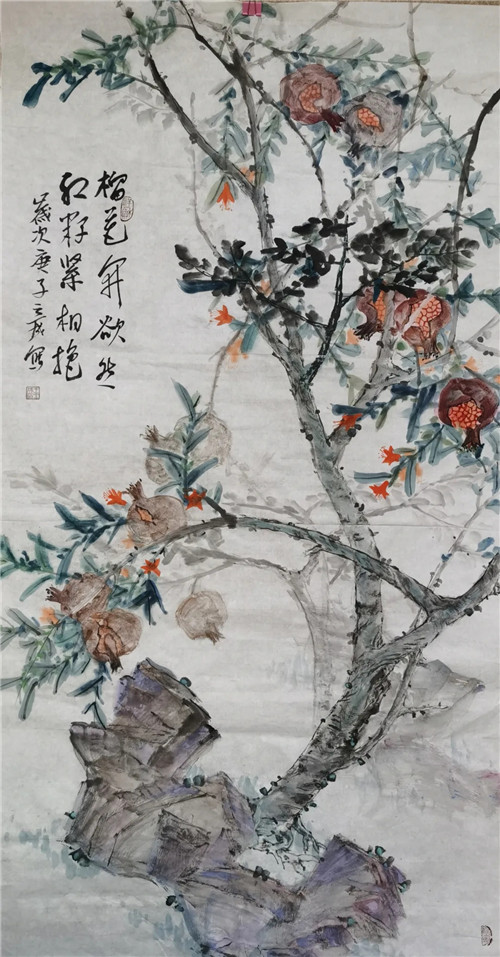 榴花开欲然
红籽紧相抱
岁次庚子
写